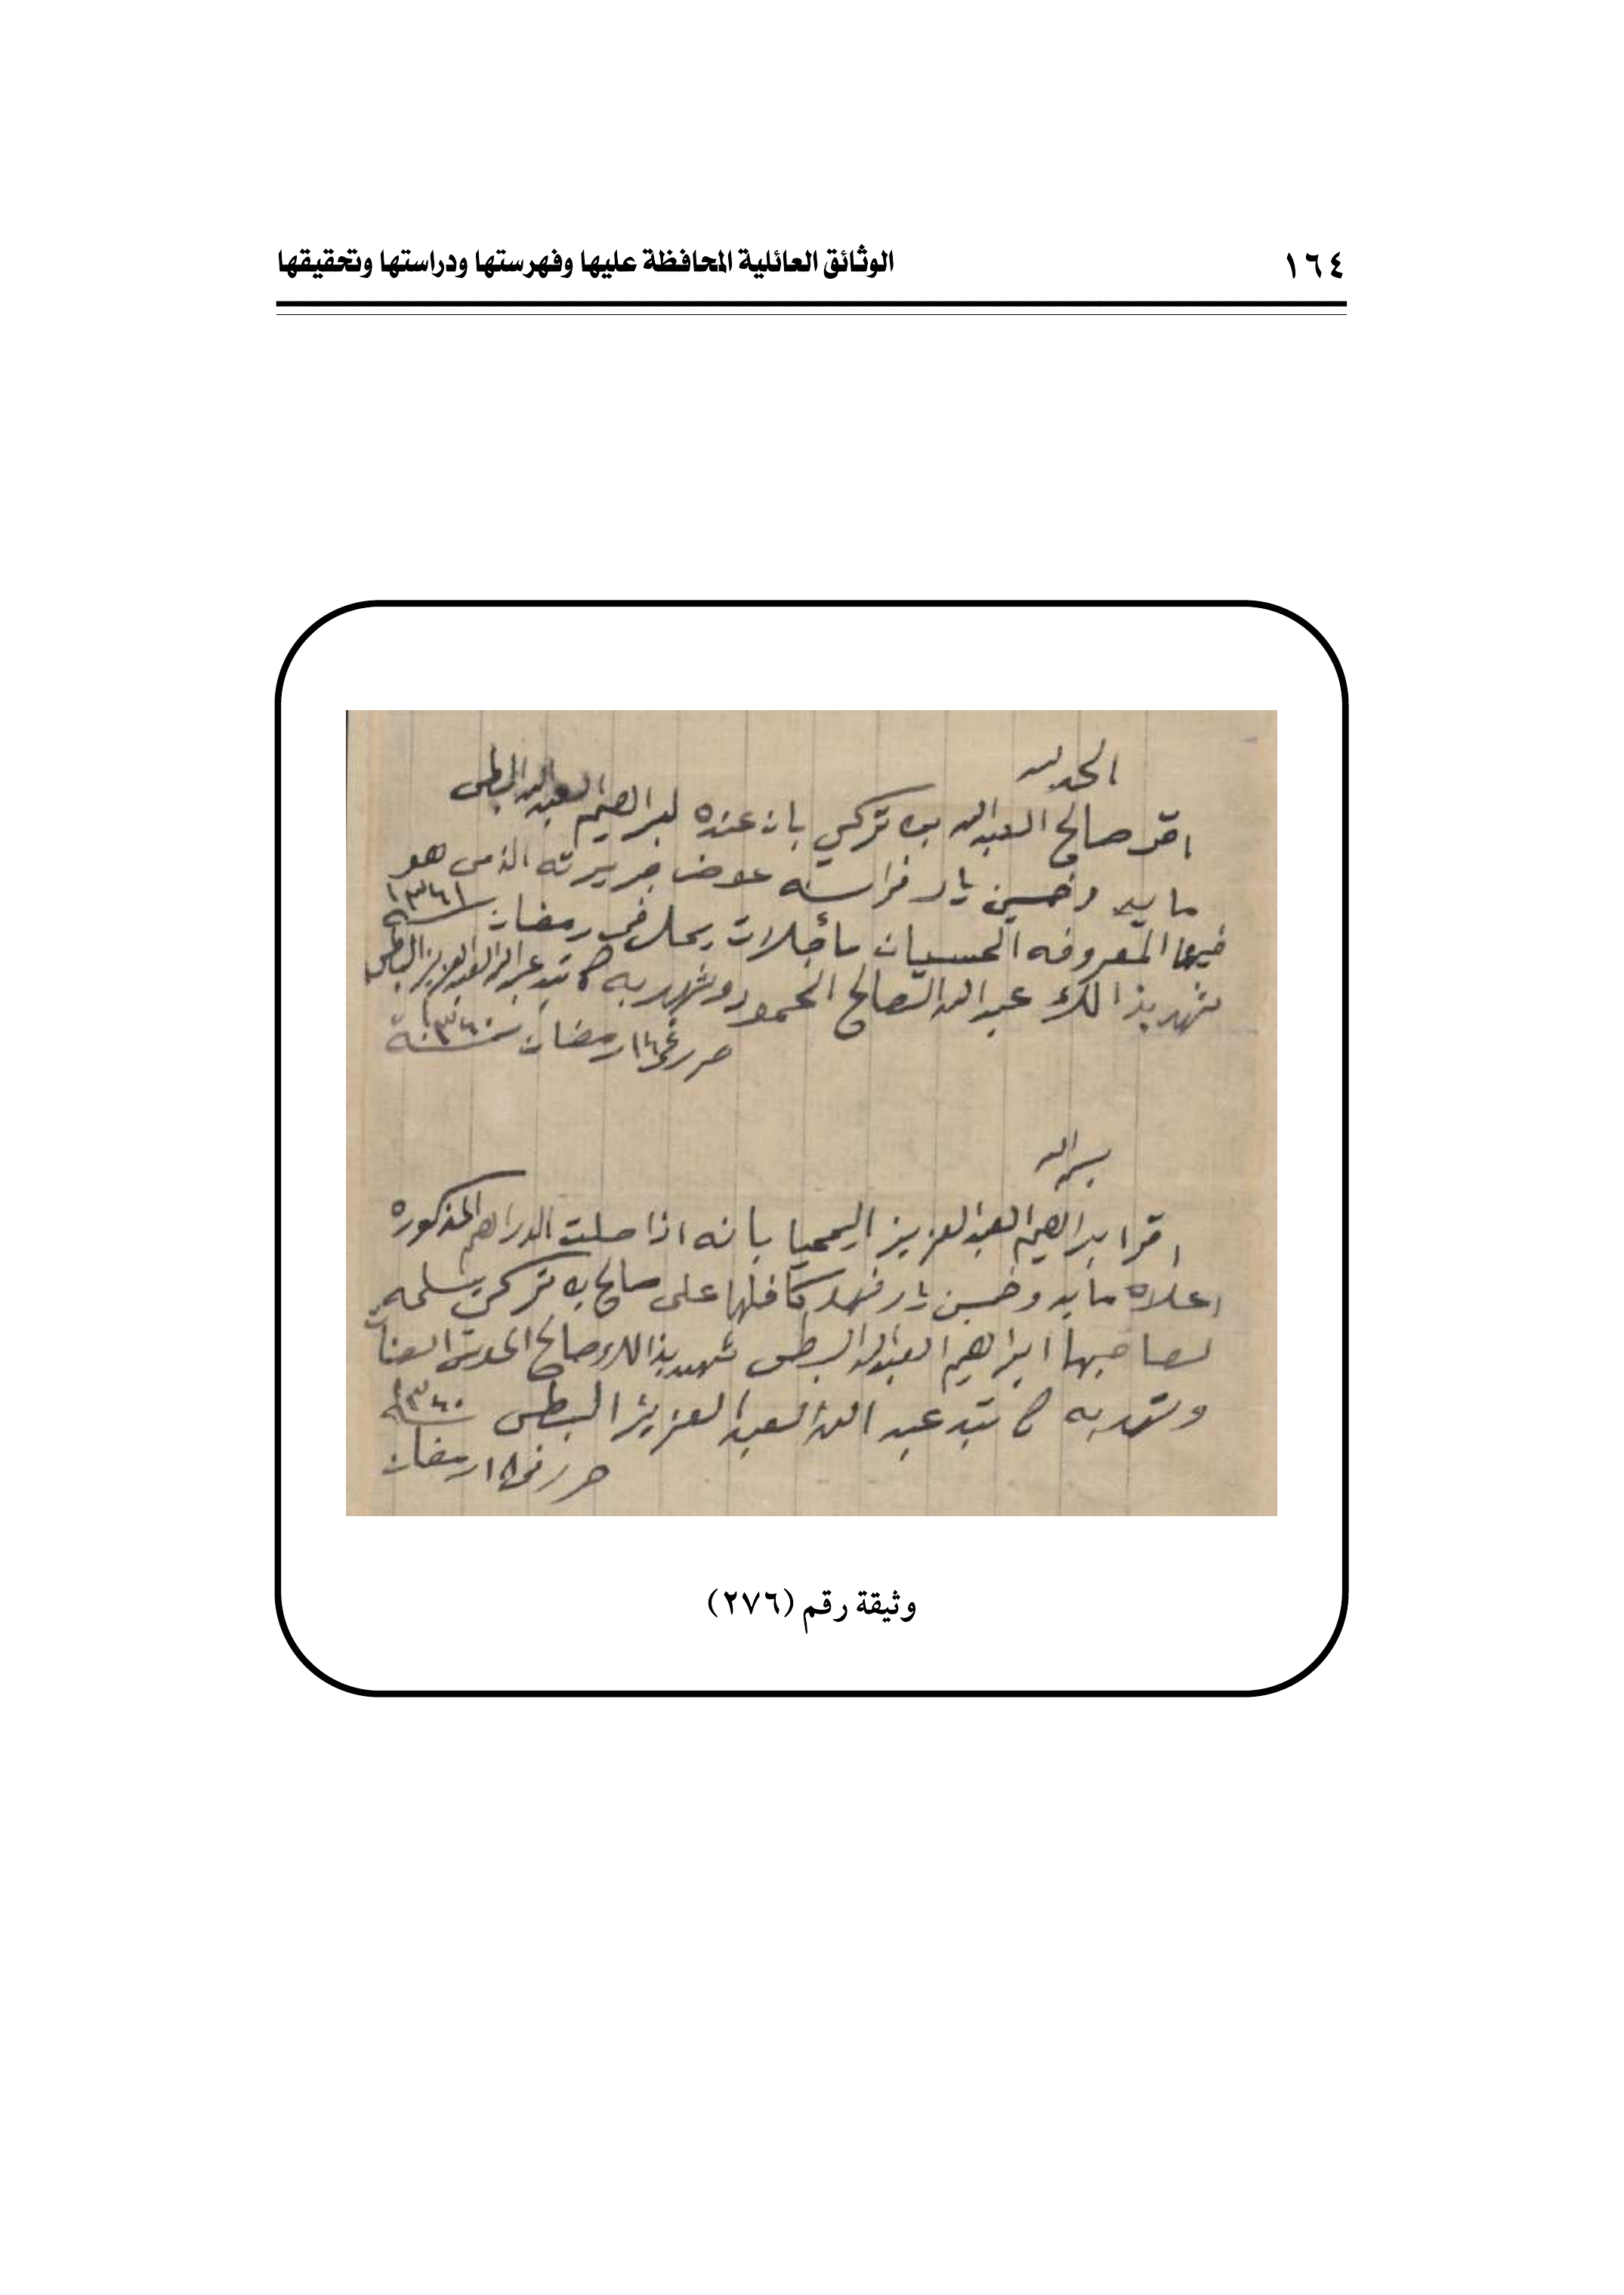 ١٦٤
الوثائق العائلية المحافظة عليها وفهرستها ودراستها وتحقيقها
الحمد لله
اقر صالح العبد الله بن تركي بان عنده لبراهيم العبد الله البطي
مايه وخمسين ريال فرانسه عوض جريرته الذي هو
فيها المعروفه الحسيان مأجلات يحل في رمضان سنة ١٣٦١
شهد بذالك عبد الله الصالح الحمود وشهد به كاتبه عبد الله العبد العزيز البطي
حرر في ١٦ رمضان سنة ١٣٦٠
بسم الله
اقر ابراهيم العبد العزيز اليحيا بانه اذا حلت الدراهم المذكوره
اعلاه مايه وخمسين ريال فهو كافلها على صالح بن تركي يسلمه
لصاحبها ابراهيم العبد الله البطي شهد بذالك صالح
وشهد به كاتبه عبد الله العبد العزيز البطي سنة ١٣٦٠
حرر في ١٨ رمضان
وثيقة رقم (٢٧٦)